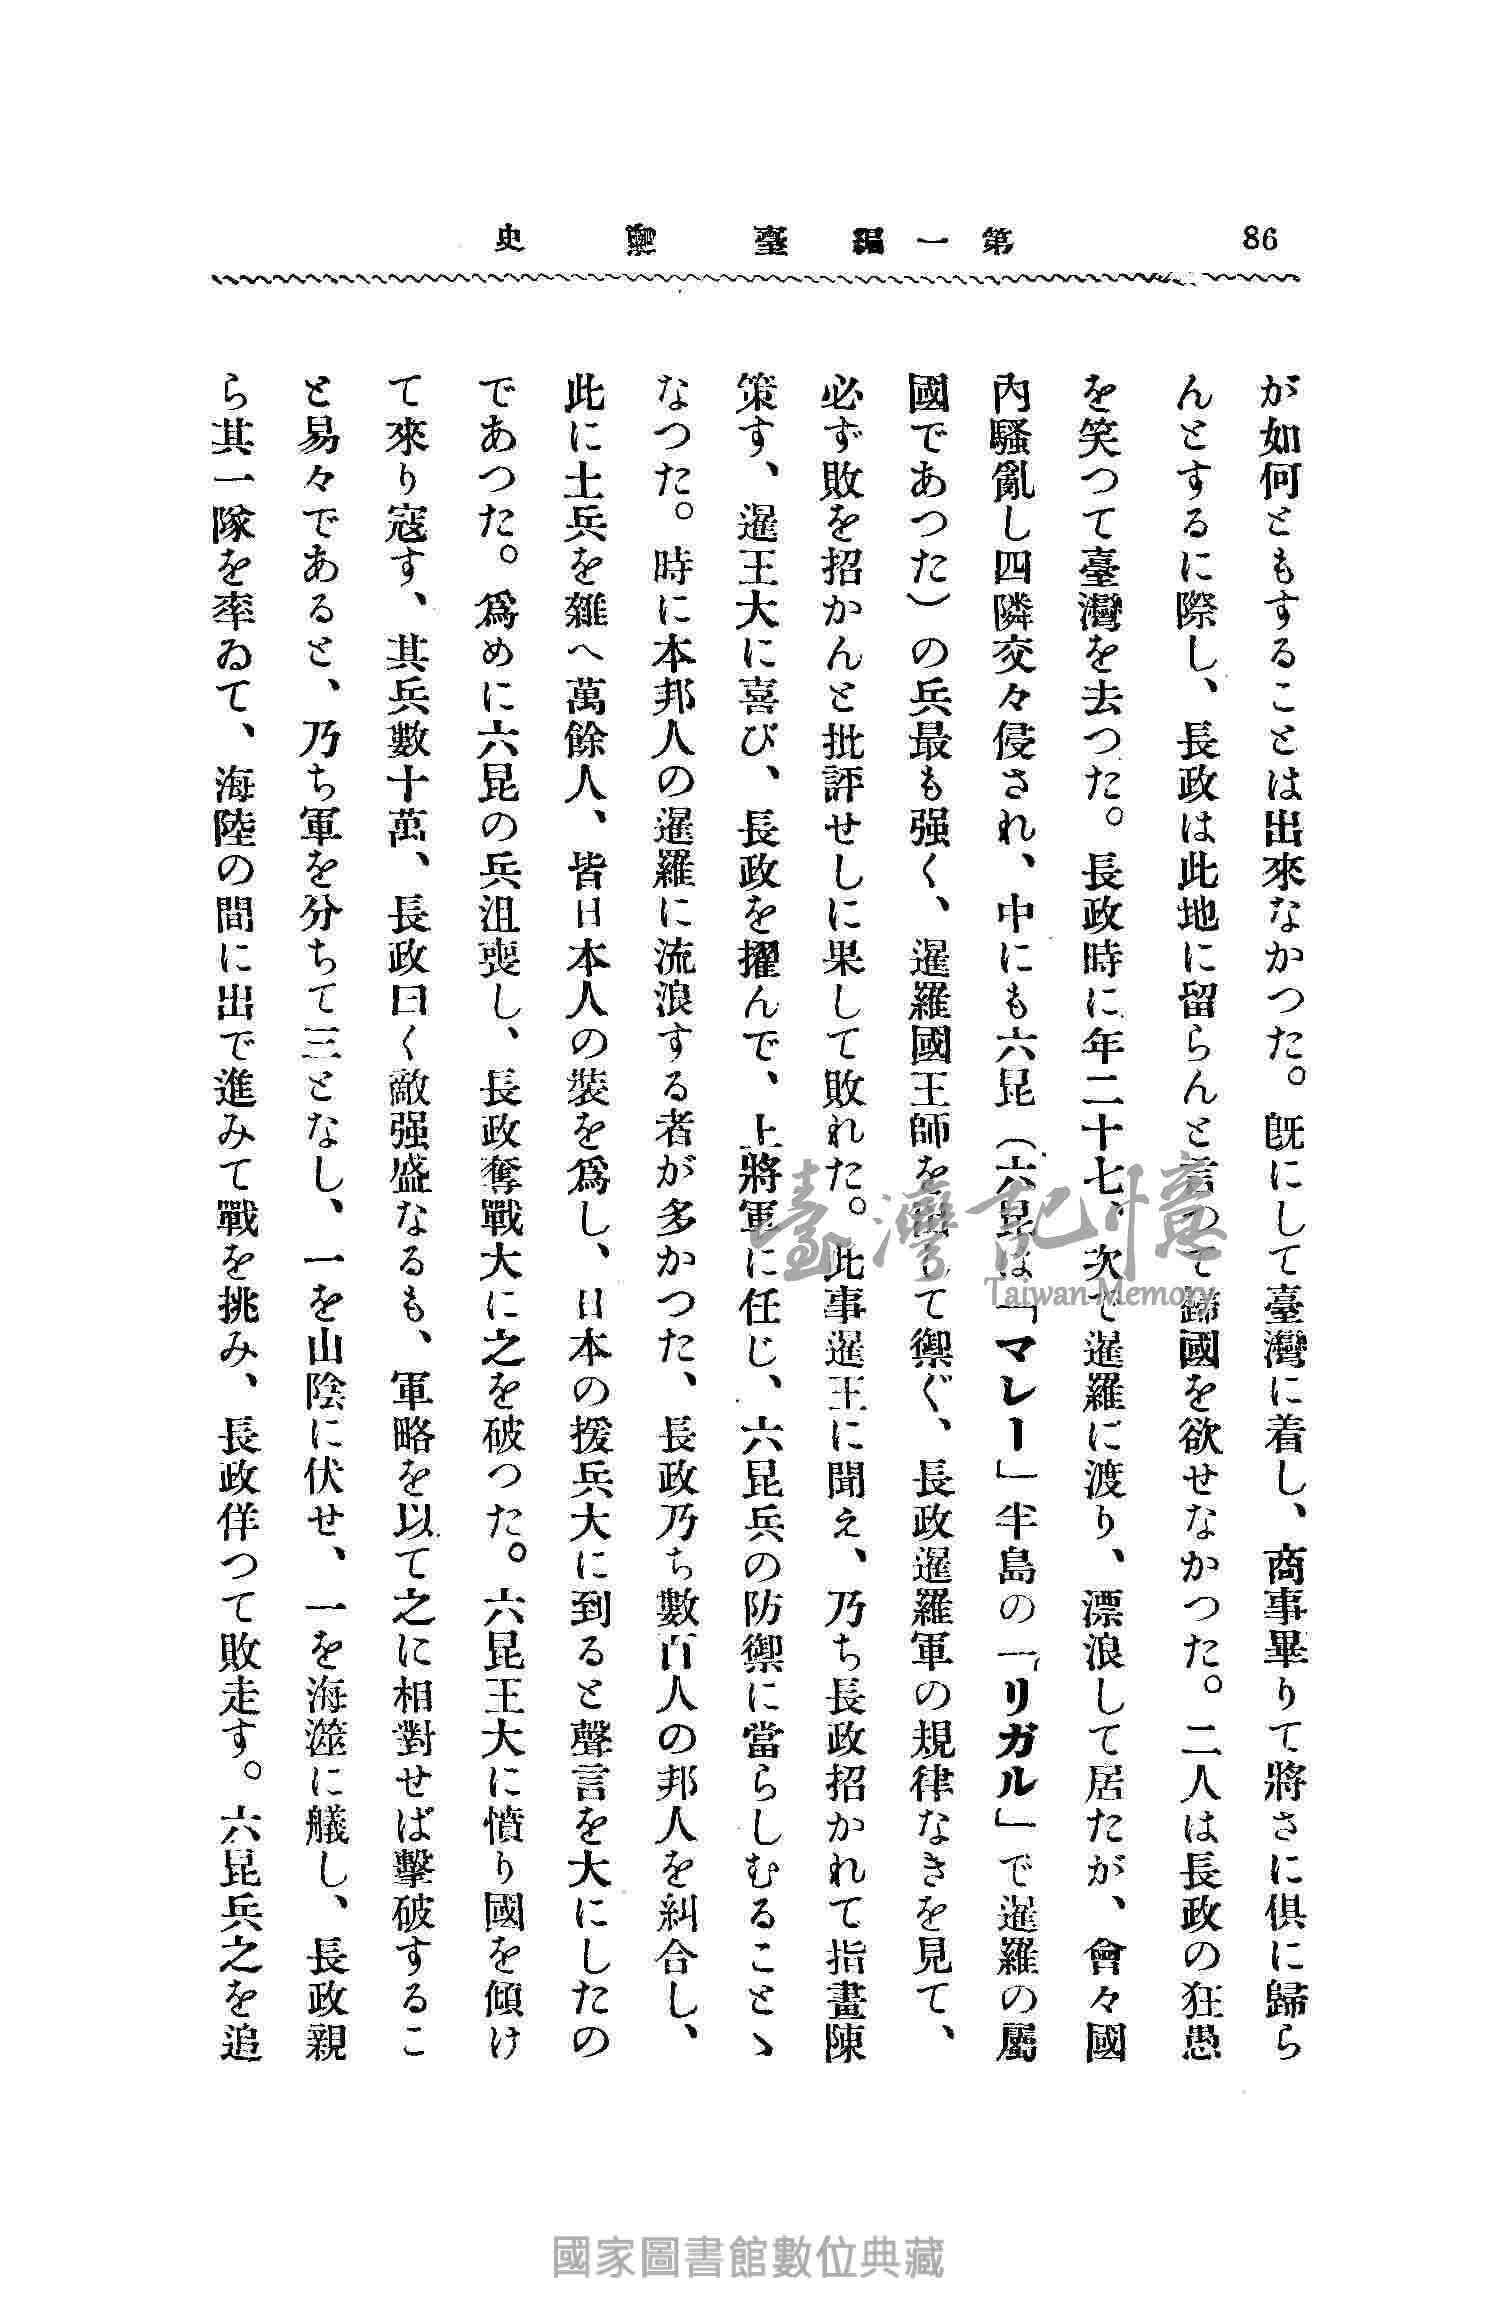 86
第一編 臺灣史
が如何ともすることは出來なかつた。既にして臺灣に着し、商事畢りて將さに俱に歸ら
んとするに際し、長政は此地に留らんと言つて歸國を欲せなかつた。二人は長政の狂愚
を笑つて臺灣を去つた。長政時に年二十七、次で暹羅に渡り、漂浪して居たが、會々國
內騷亂し四隣交々侵され、中にも六昆（六昆は「マレー」半島の「リガル」で暹羅の屬
國であつた）の兵最も强く、暹羅國王師を出して禦ぐ、長政暹羅軍の規律なきを見て、
必ず敗を招かんと批評せしに果して敗れた。此事暹王に聞え、乃ち長政招かれて指畫陳
策す、暹王大に喜び、長政を擢んで、上將軍に任じ、六昆兵の防禦に當らしむることゝ
なつた。時に本邦人の暹羅に流浪する者が多かつた、長政乃ち數百人の邦人を糾合し、
此に土兵を雜へ萬餘人、皆日本人の裝を爲し、日本の援兵大に到ると聲言を大にしたの
であつた。爲めに六昆の兵沮喪し、長政奮戰大に之を破つた。六昆王大に憤り國を傾け
て來り寇す、其兵數十萬、長政曰く敵强盛なるも、軍略を以て之に相對せば擊破するこ
と易々であると、乃ち軍を分ちて三となし、一を山陰に伏せ、一を海澨に艤し、長政親
ら其一隊を率ゐて、海陸の間に出で進みて戰を挑み、長政佯つて敗走す。六昆兵之を追
臺灣記憶
Taiwan Memory
國家圖書館數位典藏